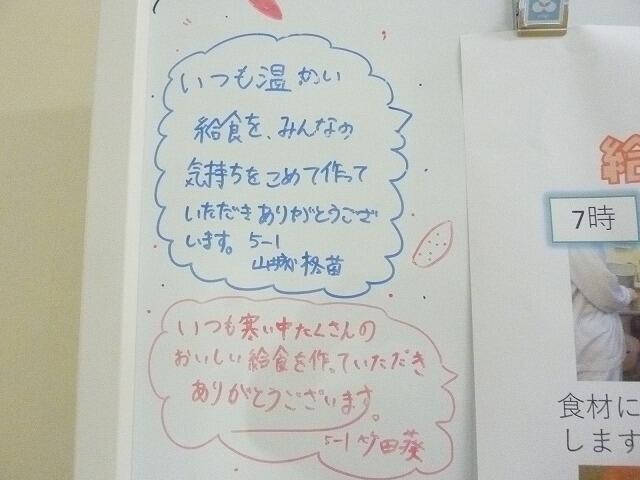 いつも温かい
給食を、みんなの
気持ちをこめて作って
いただきありがとうござ
います。 5-1
山城 柊苗
いつも寒い中たくさんの
おいしい給食を作っていただき
ありがとうございます。
5-1 竹田葵
給
7時
食材に
します